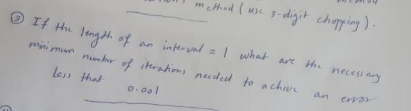 method (use 3-digit chopping).
③ If the length of an interval = 1 what are the necessary
minimum number of iterations needed to achive an error
less that 0.001